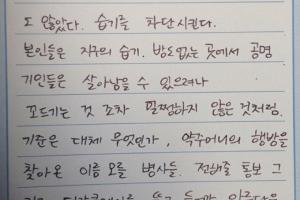 도 않았다. 습기를 차단시킨다.
본인들은 지구의 습기. 방도없는 곳에서 공명
기인들은 살아남을 수 있으려나
꼬드기는 것 조차 멀쩡하지 않은 것처럼.
기준은 대체 무엇인가, 약주머니의 행방을
찾아온 이름 모를 병사들. 전해줄 통보 그